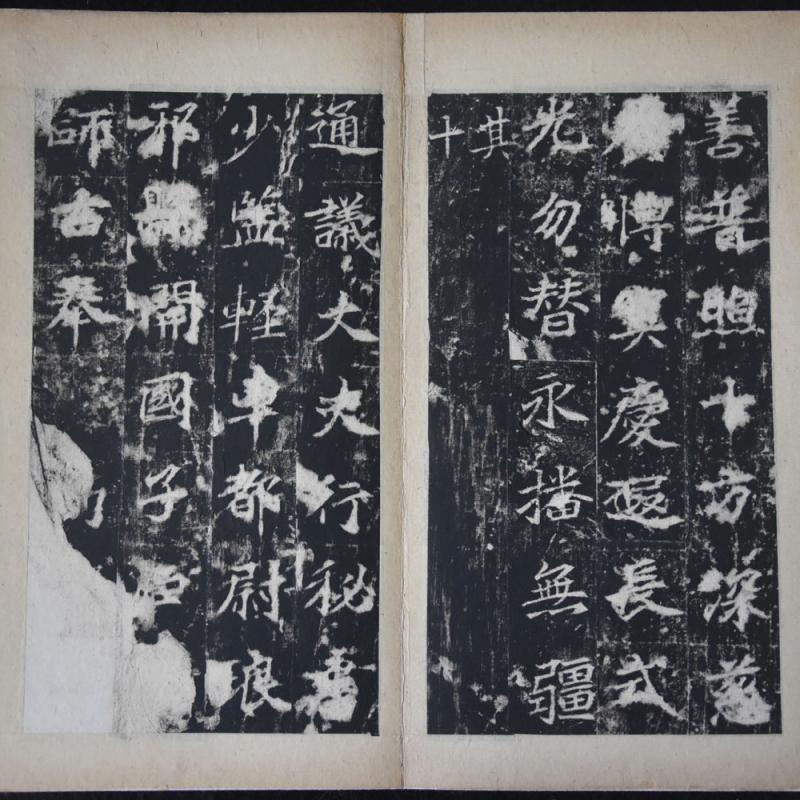 善普照十方深慈
博慶遐長式
光勿替永播無疆
其十
通議大夫行秘書
少監軽車都尉琅
邪縣開國子臣
師古奉